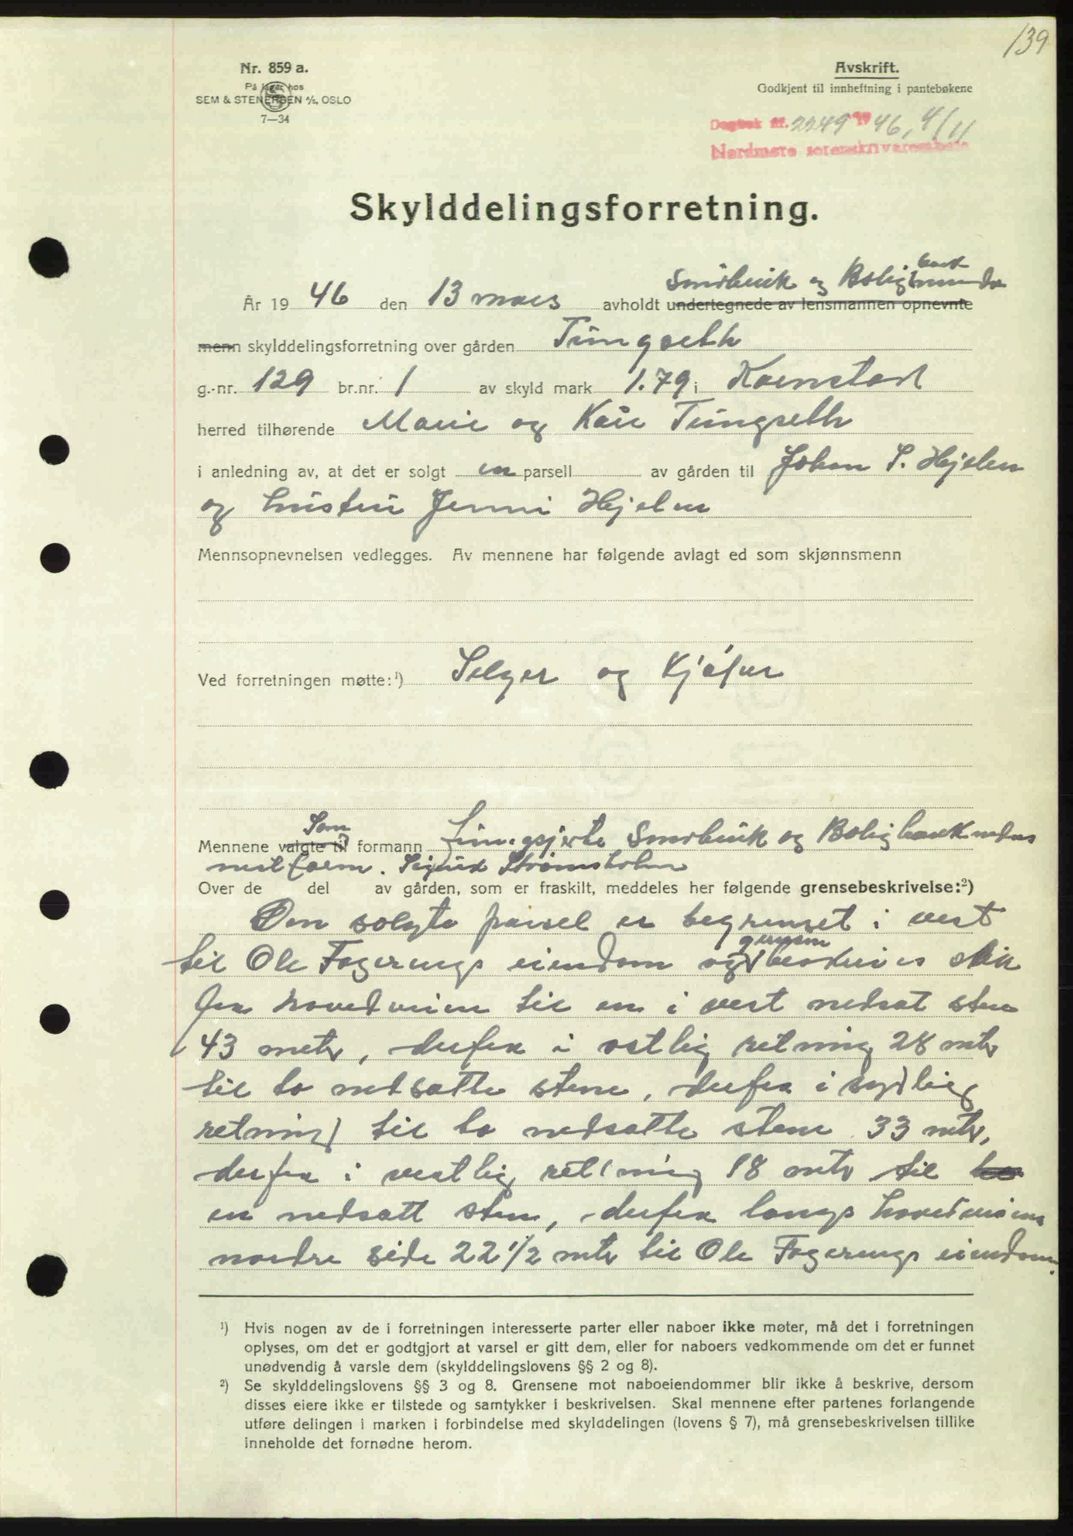 139
Nr. 859 a.
På lager hos
SEM & STENERSEN A/S, OSLO
7—34
Avskrift.
Godkjent til innheftning i pantebøkene
Dagbok nr. 2249 1946, 4/11
Nordmøre sorenskriverembede
Skylddelingsforretning.
Småbruk og Bolig bank
År 1946 den 13 mars avholdt undertegnede av lensmannen opnevnte
menn skylddelingsforretning over gården Tungseth
g.-nr. 129 br.nr. 1 av skyld mark 1.79 i Kornstad
herred tilhørende Marie og Kåre Tungseth
i anledning av, at det er solgt en parsell av gården til Johan S. Hjelen
og hustru Jenni Hjelen
Mennsopnevnelsen vedlegges. Av mennene har følgende avlagt ed som skjønnsmenn
Ved forretningen møtte:¹) Selger og Kjøper
Som
Mennene valgte til formann Småbruk og Boligbankens
nestform. Sigurd Strømsholm
Over de del av gården, som er fraskilt, meddeles her følgende grensebeskrivelse:²)
Den solgte parsel er begrenset i vest
grensen
til Ole Fagerengs eiendom og beskrives slik
fra hovedveien til en i vest nedsat sten
43 mtr, derfra i østlig retning 28 mtr
til to nedsatte stene, derfra i sydlig
retning til to nedsatte stene 33 mtr,
derfra i vestlig retning 18 mtr til to
en nedsatt sten, derfra langs hovedveiens
nordre side 22 1/2 mtr til Ole Fagerengs eiendom.
¹) Hvis nogen av de i forretningen interesserte parter eller naboer ikke møter, må det i forretningen
oplyses, om det er godtgjort at varsel er gitt dem, eller for naboers vedkommende om det er funnet
unødvendig å varsle dem (skylddelingslovens §§ 2 og 8).
²) Se skylddelingslovens §§ 3 og 8. Grensene mot naboeiendommer blir ikke å beskrive, dersom
disses eiere ikke er tilstede og samtykker i beskrivelsen. Skal mennene efter partenes forlangende
utføre delingen i marken i forbindelse med skylddelingen (lovens § 7), må grensebeskrivelsen tillike
inneholde det fornødne herom.